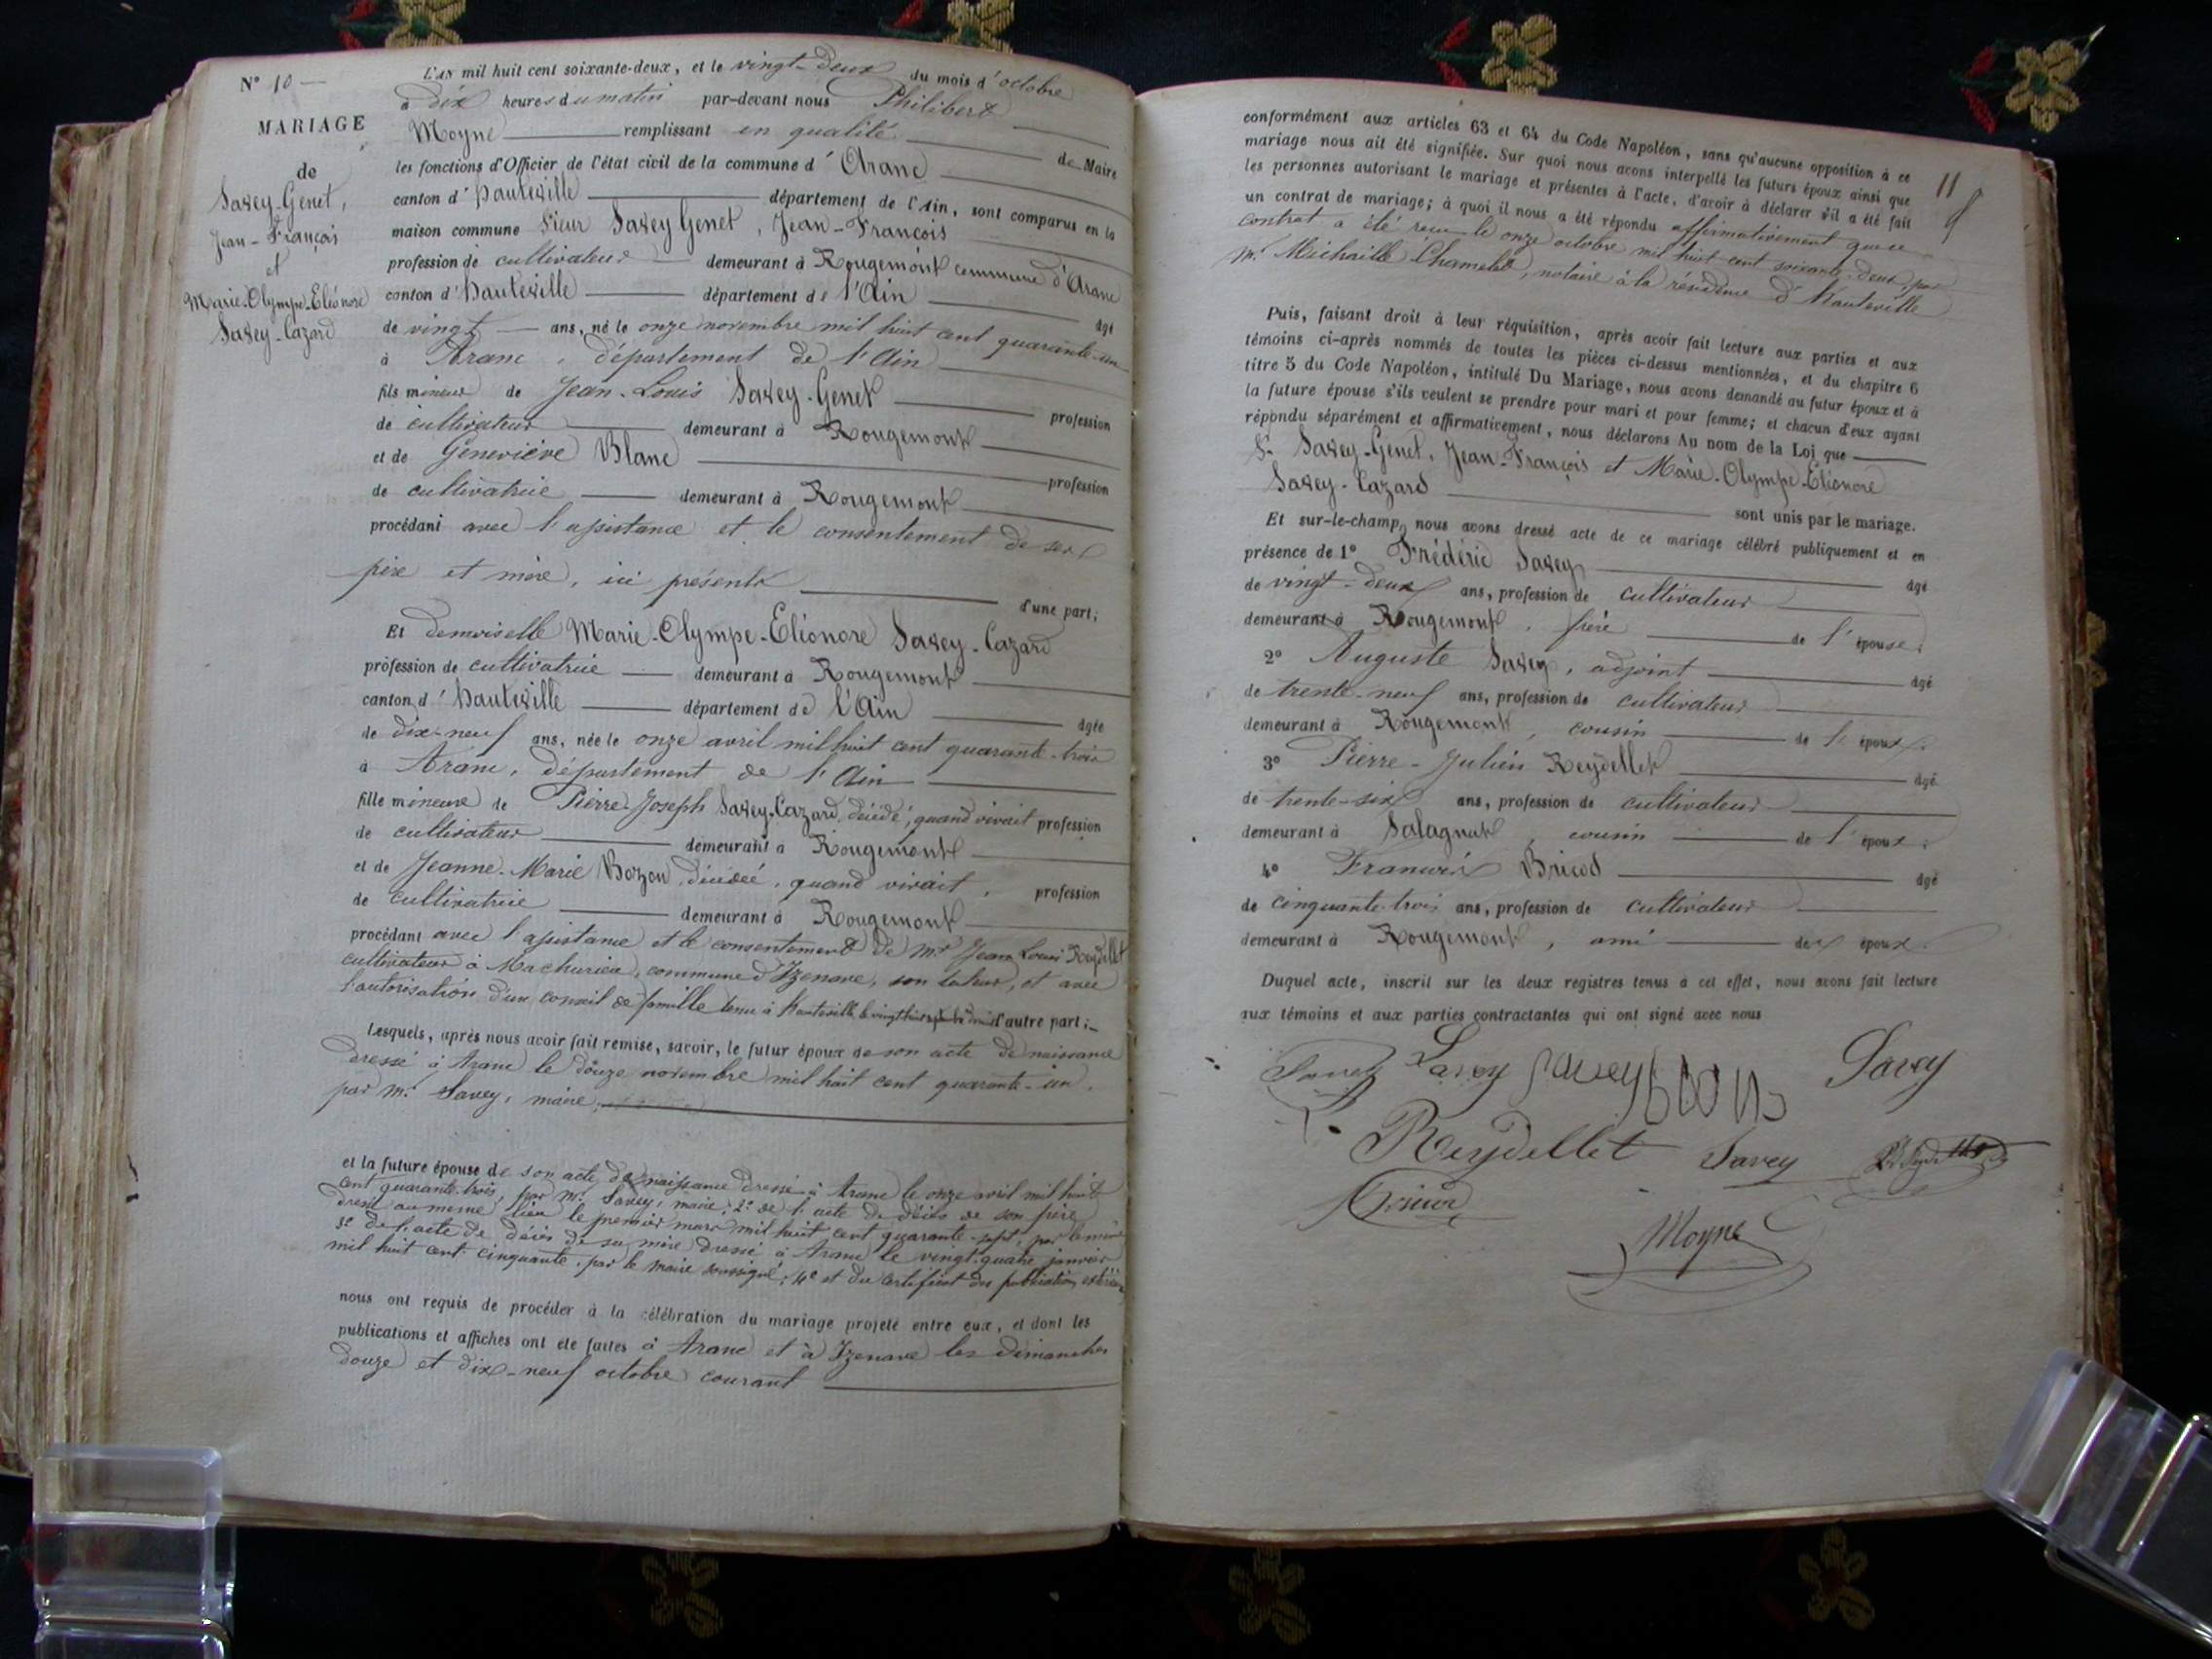 N° 10
MARIAGE
de
Savey-Genet,
Jean-François
et
Marie-Olympe-Eléonore
Savey-Cazard
L'AN mil huit cent soixante-deux, et le vingt-deux du mois d'octobre
à dix heures du matin par-devant nous Philibert
Moyne remplissant en qualité de Maire
les fonctions d'Officier de l'état civil de la commune d'Aranc
canton d'hauteville département de l'Ain, sont comparus en la
maison commune sieur Savey Genet, Jean-François
profession de cultivateur demeurant à Rougemont commune d'Aranc
canton d'hauteville département de l'Ain âgé
de vingt ans, né le onze novembre mil huit cent quarante-un
à Aranc, département de l'Ain
fils mineur de Jean-Louis Savey-Genet profession
de cultivateur demeurant à Rougemont
et de Geneviève Blanc profession
de cultivatrice demeurant à Rougemont
procédant avec l'assistance et le consentement de ses
père et mère, ici présents d'une part;
Et demoiselle Marie-Olympe-Eléonore Savey-Cazard
profession de cultivatrice demeurant à Rougemont
canton d'hauteville département de l'Ain âgée
de dix-neuf ans, née le onze avril mil huit cent quarante-trois
à Aranc, département de l'Ain
fille mineure de Pierre-Joseph Savey-Cazard, décédé, quand vivait profession
de cultivateur demeurant à Rougemont
et de Jeanne-Marie Bozon, décédée, quand vivait, profession
de cultivatrice demeurant à Rougemont
procédant avec l'assistance et le consentement de Mr Jean Louis Reydellet
cultivateur à Machurieu, commune d'Izenave, son tuteur, et avec
l'autorisation d'un conseil de famille tenu à Hauteville le d'autre part;
Lesquels, après nous avoir fait remise, savoir, le futur époux de son acte de naissance
dressé à Aranc le douze novembre mil huit cent quarante-un,
par Mr Savey, maire,
et la future épouse de son acte de naissance dressé à Aranc le onze avril mil huit
cent quarante-trois, par Mr Savey, maire; 2° de l'acte de décès de son père
dressé au même lieu le premier mars mil huit cent quarante-sept, par le même
3° de l'acte de décès de sa mère dressé à Aranc le vingt-quatre janvier
mil huit cent cinquante, par le maire soussigné; 4° et du certificat des publications
nous ont requis de procéder à la célébration du mariage projeté entre eux, et dont les
publications et affiches ont été faites à Aranc et à Izenave les dimanches
douze et dix-neuf octobre courant
11
conformément aux articles 63 et 64 du Code Napoléon, sans qu'aucune opposition à ce
mariage nous ait été signifiée. Sur quoi nous avons interpellé les futurs époux ainsi que
les personnes autorisant le mariage et présentes à l'acte, d'avoir à déclarer s'il a été fait
un contrat de mariage; à quoi il nous a été répondu affirmativement que ce
contrat a été reçu le onze octobre mil huit cent soixante-deux, par
Mr Michaille Chamelet, notaire à la résidence d'Hauteville
Puis, faisant droit à leur réquisition, après avoir fait lecture aux parties et aux
témoins ci-après nommés de toutes les pièces ci-dessus mentionnées, et du chapitre 6
titre 5 du Code Napoléon, intitulé Du Mariage, nous avons demandé au futur époux et à
la future épouse s'ils veulent se prendre pour mari et pour femme; et chacun d'eux ayant
répondu séparément et affirmativement, nous déclarons Au nom de la Loi que
Sr Savey-Genet, Jean-François et Marie-Olympe-Eléonore
Savey-Cazard sont unis par le mariage.
Et sur-le-champ nous avons dressé acte de ce mariage célébré publiquement et en
présence de 1° Frédéric Savey âgé
de vingt-deux ans, profession de cultivateur
demeurant à Rougemont, frère de l'épouse;
2° Auguste Savey, adjoint âgé
de trente-neuf ans, profession de cultivateur
demeurant à Rougemont, cousin de l'époux;
3° Pierre-Julien Reydellet âgé
de trente-six ans, profession de cultivateur
demeurant à Salagnat, cousin de l'époux;
4° François Bricod âgé
de cinquante-trois ans, profession de cultivateur
demeurant à Rougemont, ami des époux.
Duquel acte, inscrit sur les deux registres tenus à cet effet, nous avons fait lecture
aux témoins et aux parties contractantes qui ont signé avec nous
Savey Savey Savey Savey
Reydellet Savey
Moyne